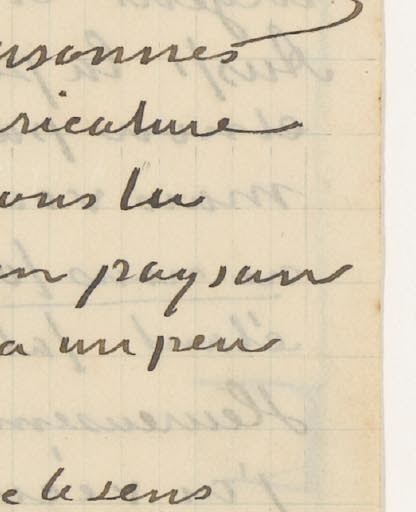 rsonnes
ricature
ous lu
un paysan
a un peu
e le sens